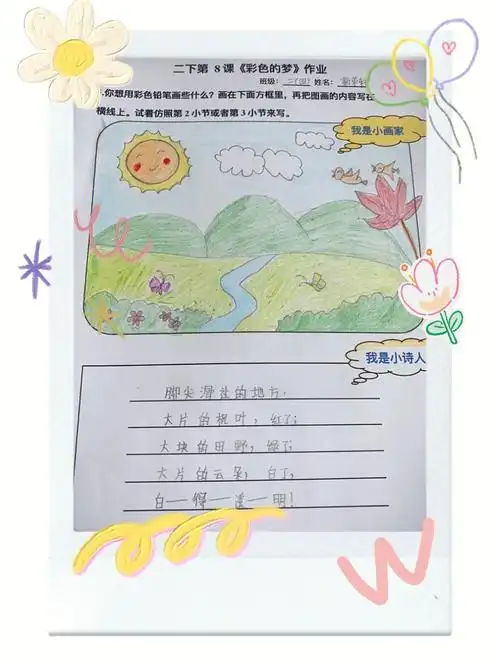 二下第 8 课《彩色的梦》作业
班级： 二（四） 姓名：
你想用彩色铅笔画些什么？画在下面方框里，再把图画的内容写在
横线上。试着仿照第 2 小节或者第 3 小节来写。
我是小画家
我是小诗人
脚尖滑过的地方，
大片的枫叶，红了；
大块的田野，绿了；
大片的云朵，白了，
白——得——透——明！